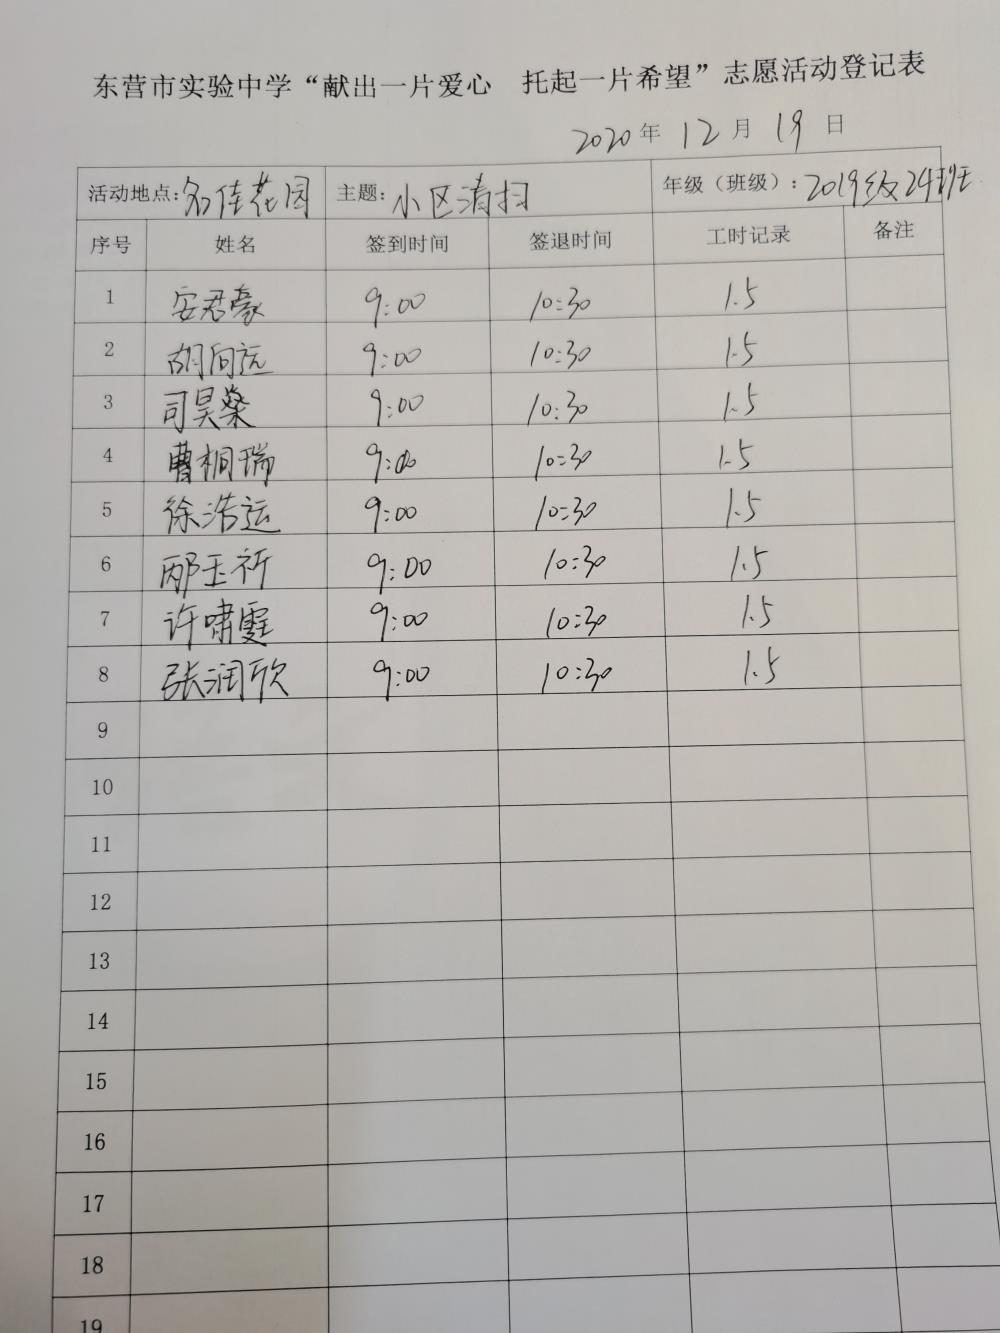 东营市实验中学“献出一片爱心 托起一片希望”志愿活动登记表
2020年 12月 19日
活动地点:名佳花园 主题:小区清扫 年级（班级）:2019级24班
序号 姓名 签到时间 签退时间 工时记录 备注
1 安君豪 9:00 10:30 1.5
2 胡向远 9:00 10:30 1.5
3 司昊燊 9:00 10:30 1.5
4 曹桐瑞 9:00 10:30 1.5
5 徐浩运 9:00 10:30 1.5
6 邴玉祈 9:00 10:30 1.5
7 许啸霆 9:00 10:30 1.5
8 张润欣 9:00 10:30 1.5
9
10
11
12
13
14
15
16
17
18
19